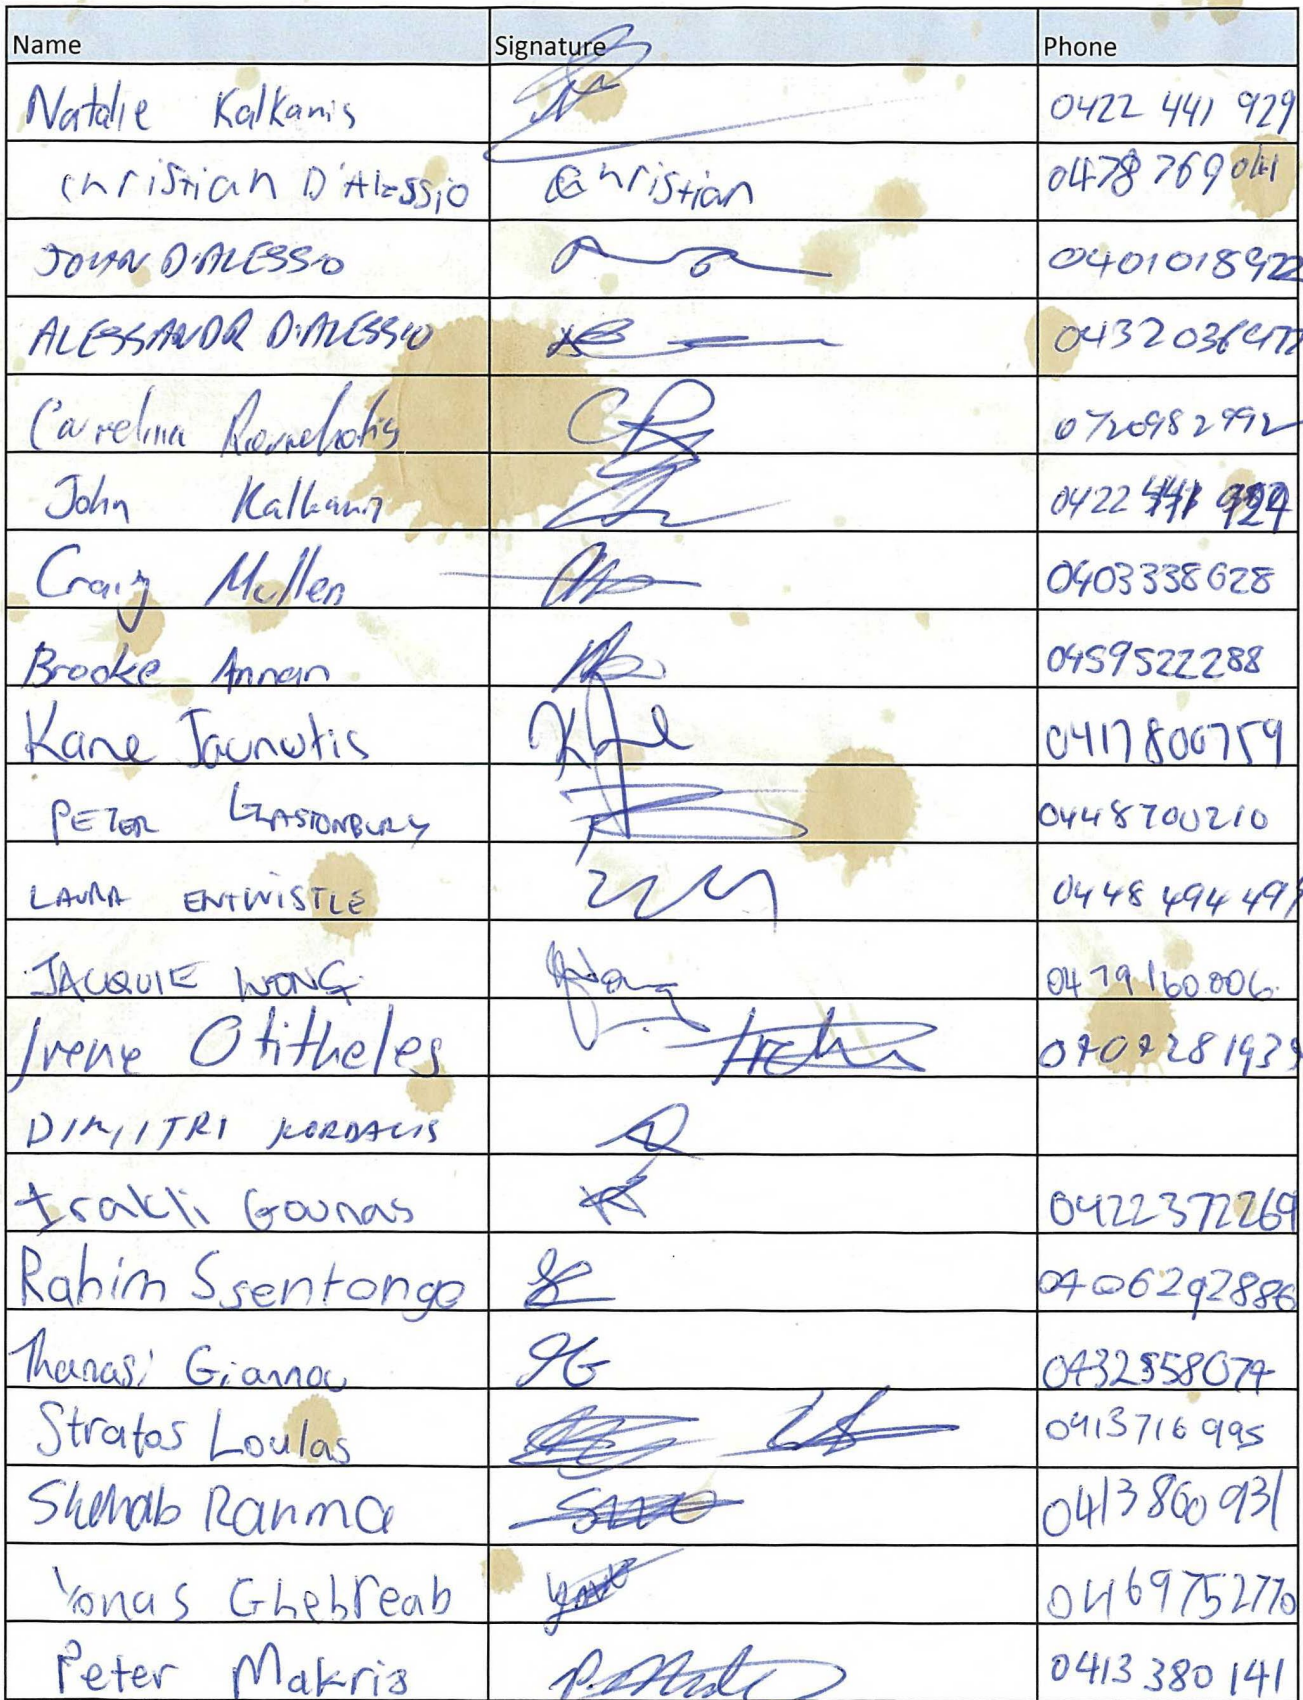 Name Signature Phone
Natalie Kalkanis 0422 441 929
Christian D'Alessio Christian 0478 769 041
JOHN D'ALESSIO 0401018922
ALESSANDR D'ALESSIO
0720982992
John Kalkanis 0422
Craig Mullen 0403338628
Brooke Annan 0459522288
Kane Jaunutis 0417800759
PETER GLASTONBURY 0448700210
LAURA ENTWISTLE 0448 494 491
JACQUIE WONG 0479160006
Irene Otitheles
DIMITRI KORDALIS
Irakli Gounas 0422372269
Rahim Ssentongo 0406292886
Thanasi Giannou 0432558074
Stratos Loulas 0413716995
Shehab Ranma 0413860931
Yonas Ghebreab 0469752770
Peter Makris 0413 380 141